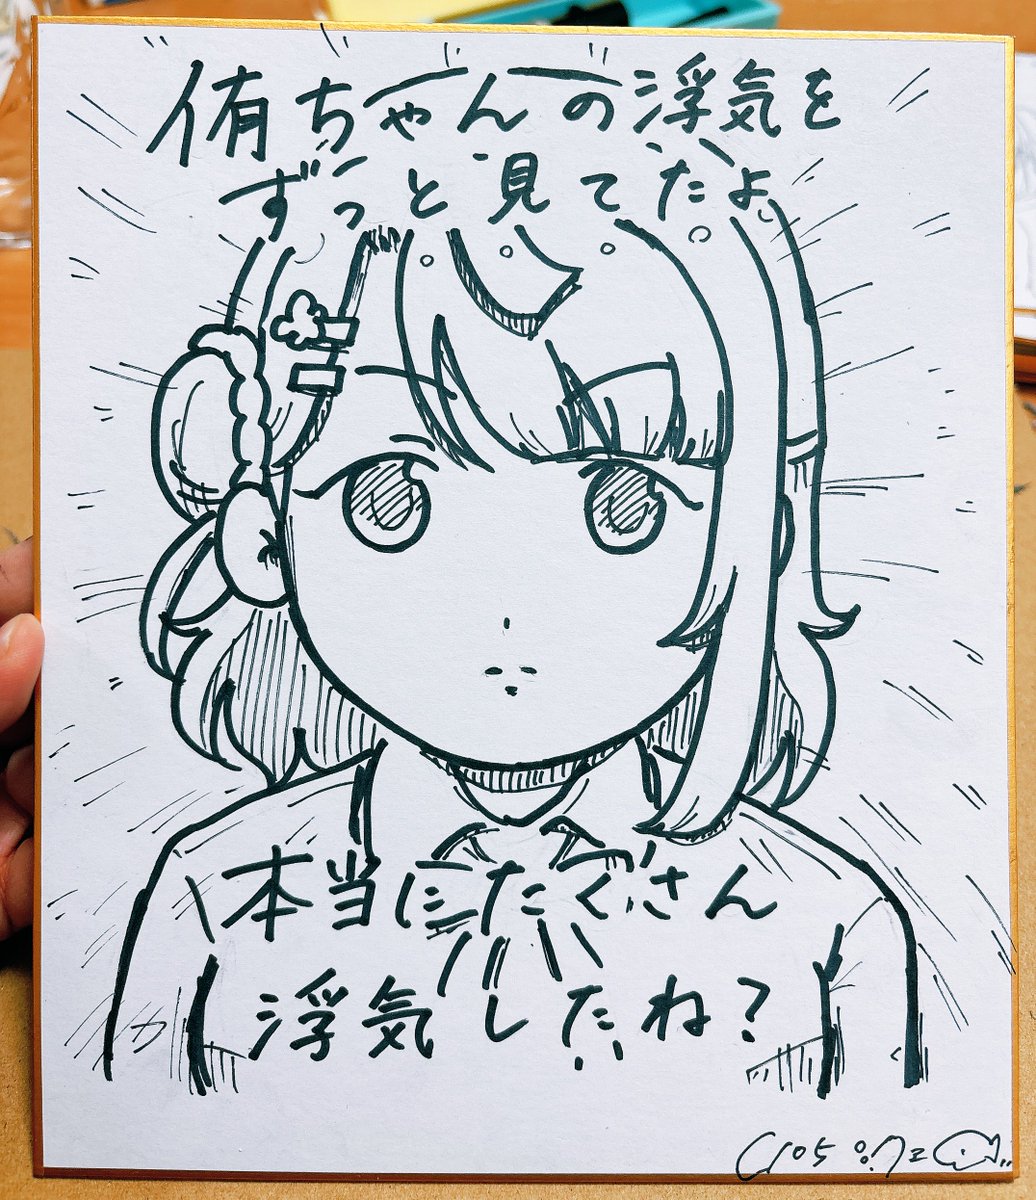 侑ちゃんの浮気を
ずっと見てたよ。
本当にたくさん
浮気したね？